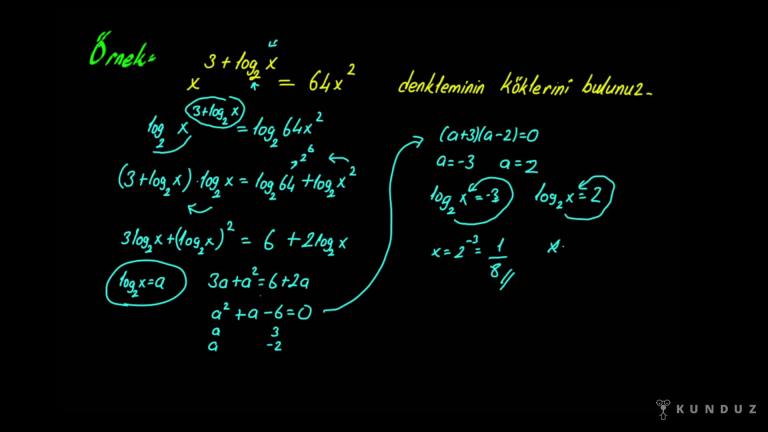 Örnek=
x^(3+log₂x) = 64x² denkleminin köklerini bulunuz-
log₂ x^(3+log₂x) = log₂ 64x²
2⁶
(3+log₂x).log₂x = log₂64 + log₂x²
3log₂x + (log₂x)² = 6 + 2log₂x
log₂x=a 3a+a²=6+2a
a²+a-6=0
a 3
a -2
(a+3)(a-2)=0
a=-3 a=2
log₂x=-3 log₂x=2
x=2⁻³=1/8// x
KUNDUZ